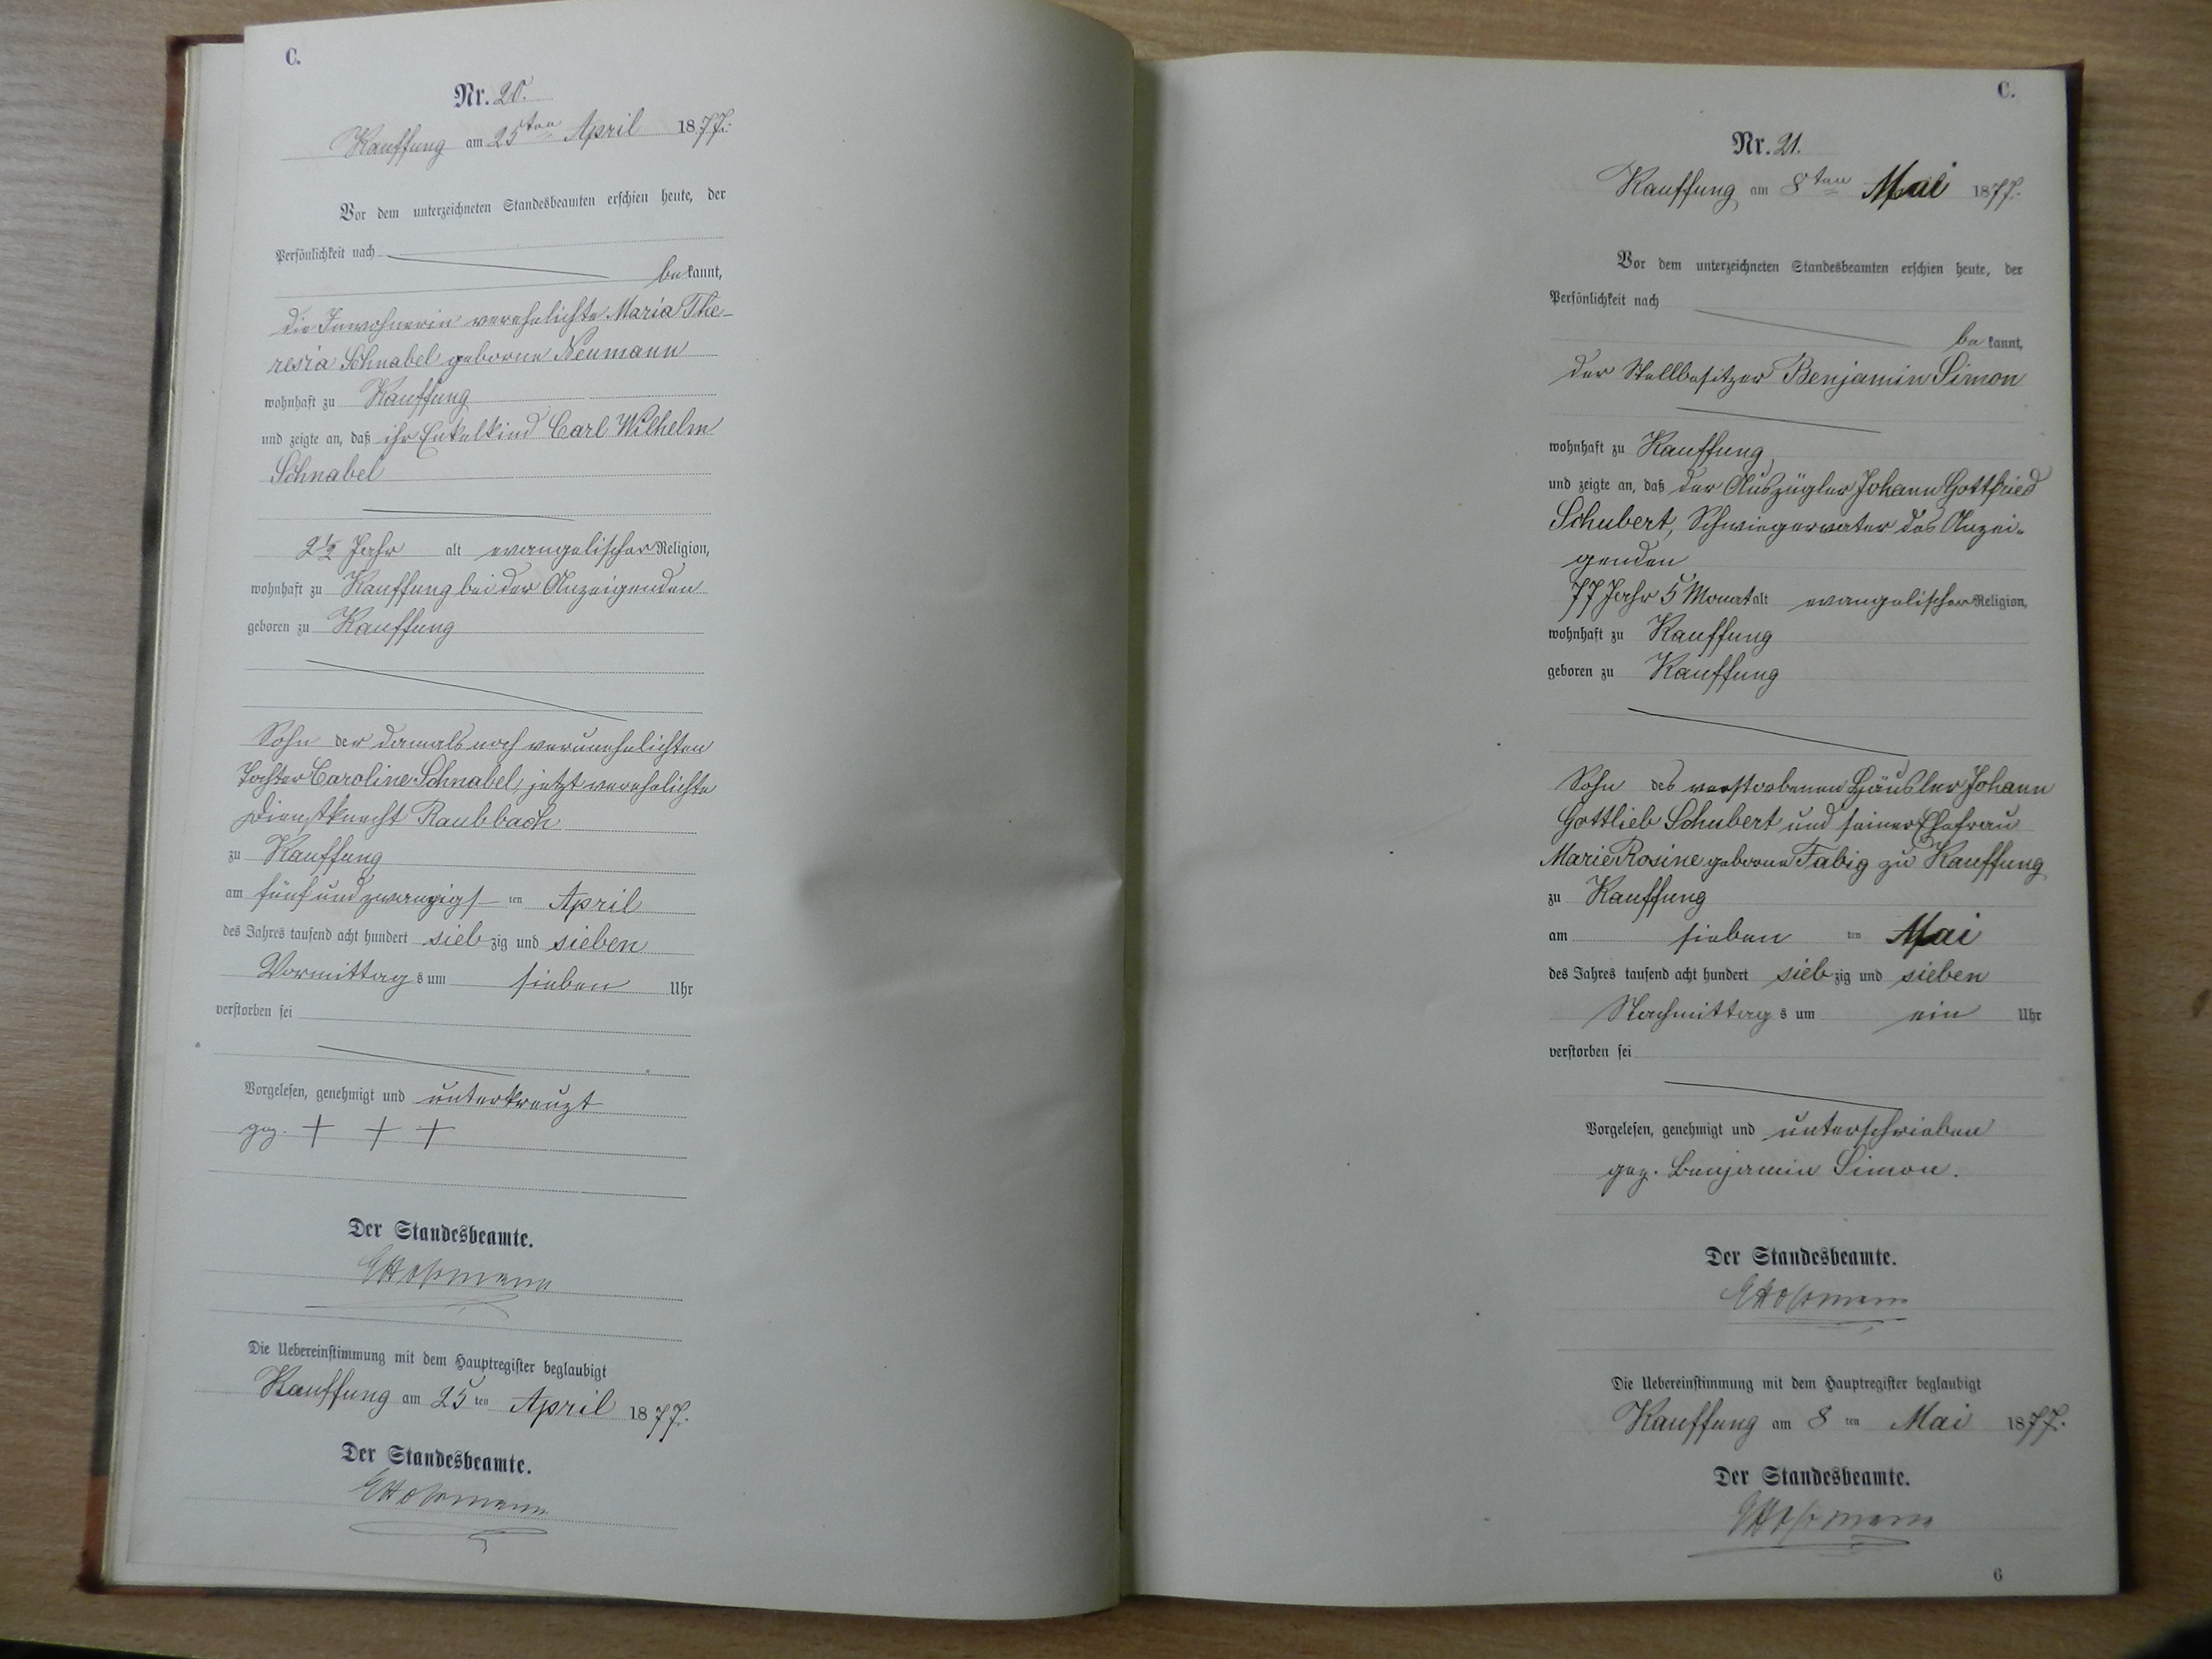 C.
Nr. 20.
Kauffung am 25ten April 1877.
Vor dem unterzeichneten Standesbeamten erschien heute, der
Persönlichkeit nach
bekannt,
die Inwohnerin verehelichte Maria The-
resia Schnabel geborne Neumann
wohnhaft zu Kauffung
und zeigte an, daß ihr Enkelkind Carl Wilhelm
Schnabel
2½ Jahr alt evangelischer Religion,
wohnhaft zu Kauffung bei der Anzeigenden
geboren zu Kauffung
Sohn der damals noch verunehelichten
Tochter Caroline Schnabel, jetzt verehelichte
Dienstknecht Raubbach
zu Kauffung
am fünf und zwanzigsten April
des Jahres tausend acht hundert siebzig und sieben
Vormittags um sieben Uhr
verstorben sei
Vorgelesen, genehmigt und unterkreuzt
gez. + + +
Der Standesbeamte.
Die Uebereinstimmung mit dem Hauptregister beglaubigt
Kauffung am 25ten April 1877.
Der Standesbeamte.
C.
Nr. 21.
Kauffung am 8ten Mai 1877.
Vor dem unterzeichneten Standesbeamten erschien heute, der
Persönlichkeit nach
bekannt,
der Stellbesitzer Benjamin Simon
wohnhaft zu Kauffung
und zeigte an, daß der Auszügler Johann Gottfried
Schubert, Schwiegervater des Anzei-
genden
77 Jahr 5 Monat alt evangelischer Religion,
wohnhaft zu Kauffung
geboren zu Kauffung
Sohn des verstorbenen Häusler Johann
Gottlieb Schubert und seiner Ehefrau
Marie Rosine geborne Fabig zu Kauffung
zu Kauffung
am siebenten Mai
des Jahres tausend acht hundert siebzig und sieben
Nachmittags um ein Uhr
verstorben sei
Vorgelesen, genehmigt und unterschrieben
gez. Benjamin Simon.
Der Standesbeamte.
Die Uebereinstimmung mit dem Hauptregister beglaubigt
Kauffung am 8ten Mai 1877.
Der Standesbeamte.
6